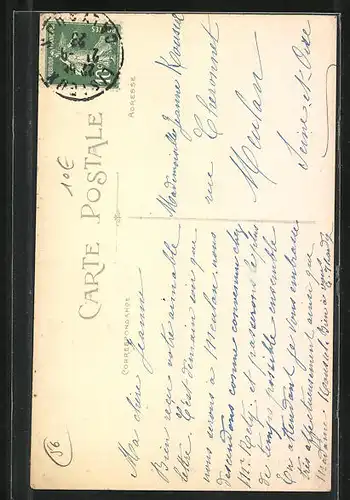 CARTE POSTALE
CORRESPONDANCE
ADRESSE
10€
56
Ma chère Jeanne
Bien reçu votre aimable
lettre. C'est demain soir que
nous serons à Meulan, nous
descendons comme convenu chez
et passerons le plus
de temps possible ensemble
En attendant je vous embrasse
très affectueusement ainsi que
Madame
Mademoiselle Jeanne
rue Thévonnet
Meulan
Seine et Oise